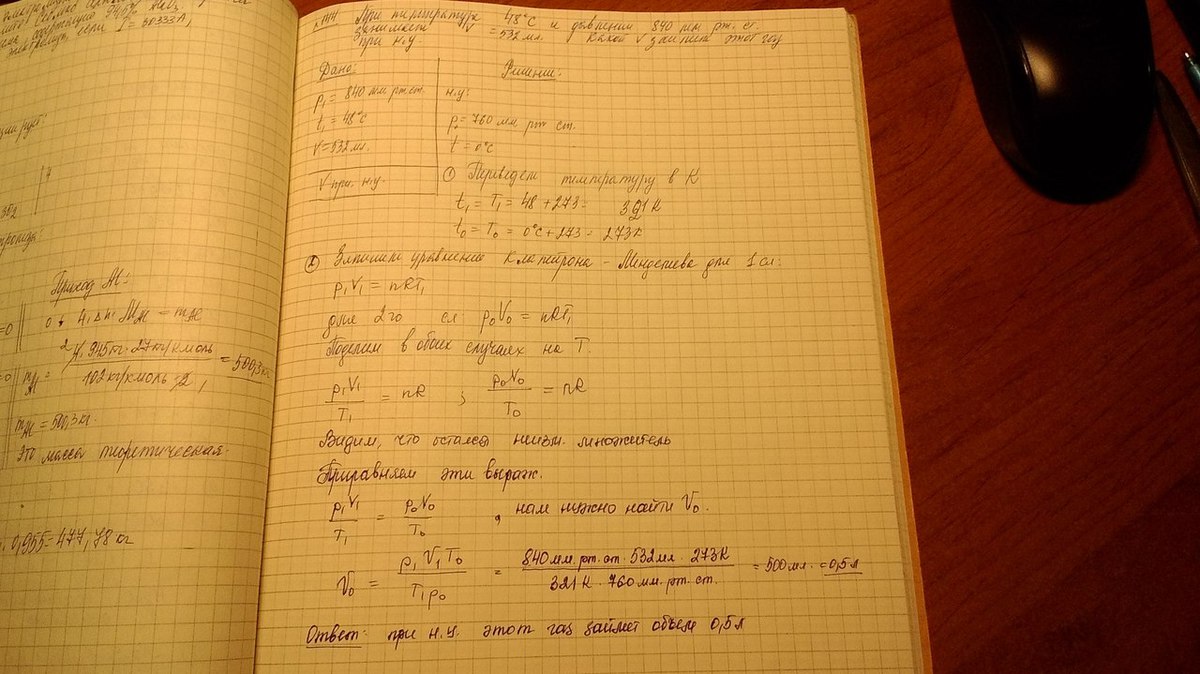 сл.
I = 50333А,
Приход Al:
0 + 4,
= mAl
4,945т · 27кг/кмоль
= 500,3кг
mAl =
102 кг/кмоль · 2
mAl = 500,3кг.
Это масса теоретическая.
0,955 = 477,78 кг
При температуре 48°С и давлении 840 мм рт. ст
занимает V = 532мл. Какой V займет этот газ
при н.у
Дано:
Решение:
p₁ = 840 мм. рт. ст.
t₁ = 48°С
V = 532мл.
V при. н.у.
н.у:
p₀ = 760 мм. рт ст.
t = 0°С
① Переведем температуру в К
t₁ = T₁ = 48 + 273 = 321К
t₀ = T₀ = 0°С + 273 = 273К
② Запишем уравнение Клапейрона - Менделеева для 1 сл:
p₁V₁ = nRT₁
для 2го сл: p₀V₀ = nRT₁
Поделим в обоих случаях на Т.
p₁V₁ / T₁ = nR ; p₀V₀ / T₀ = nR
Видим, что остался неизм. множитель
Приравняем эти выраж.
p₁V₁ / T₁ = p₀V₀ / T₀ , нам нужно найти V₀.
V₀ = p₁V₁T₀ / T₁p₀ = 840мм. рт. ст. · 532мл. · 273К / 321К · 760мм. рт. ст. = 500мл. = 0,5л
Ответ: при н.у. этот газ займет объем 0,5л